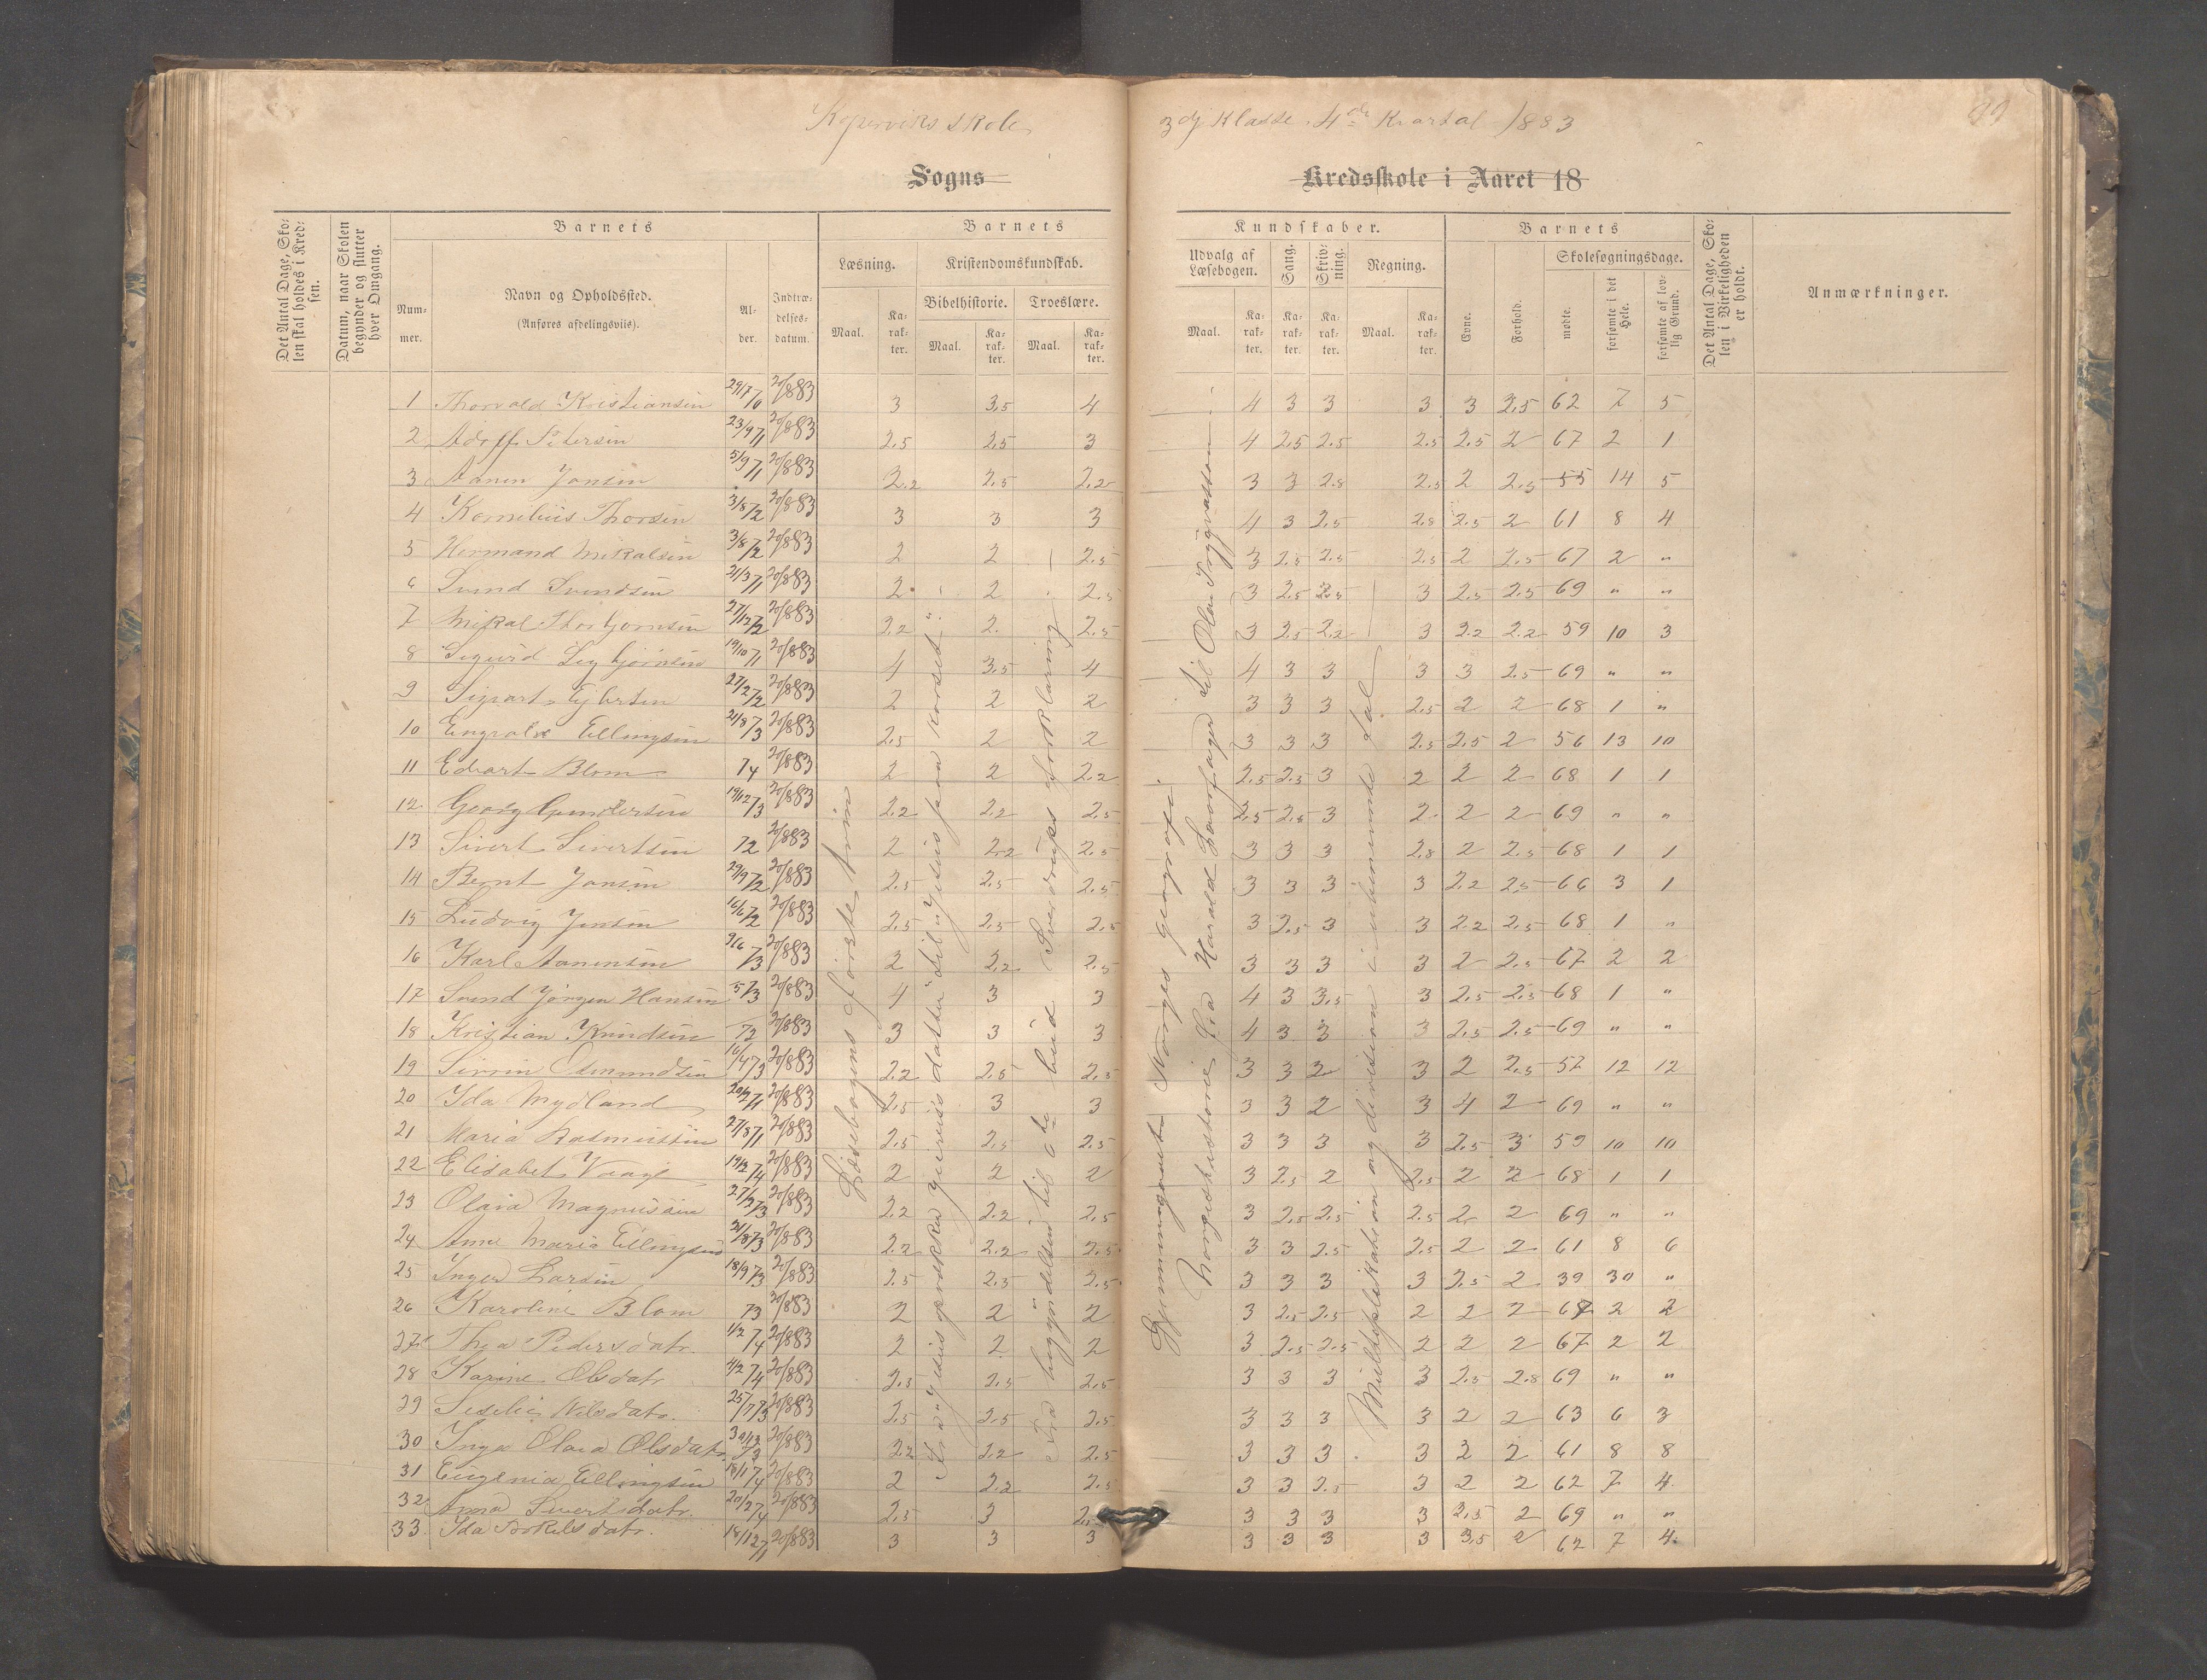 Koperviks skole, 3dj Klasse. 4de Kvartal 1883 99
Sogns Kredsskole i Aaret 18
Det Antal Dage, Skolen skal holdes i Kredsen.
Datum, naar Skolen begynder og slutter hver Omgang.
Barnets
Nummer.
Navn og Opholdssted.
(Anføres afdelingsviis).
Alder.
Indtrædelsesdatum.
Barnets Kundskaber.
Læsning.
Maal. Karakter.
Kristendomskundskab.
Bibelhistorie. Troeslære.
Maal. Karakter. Maal. Karakter.
Udvalg af Læsebogen.
Maal. Karakter.
Sang. Karakter.
Skrivning. Karakter.
Regning.
Maal. Karakter.
Barnets
Evne.
Forhold.
Skolesøgningsdage.
mødte.
forsømte i det Hele.
forsømte af lovlig Grund.
Det Antal Dage, Skolen i Virkeligheden er holdt.
Anmærkninger.
1 Thorvald Kristiansen 29/7 70 20/883 3 3,5 4 4 3 3 3 3 2,5 62 7 5
2 Adolf Petersen 23/9 71 20/883 2.5 2,5 3 4 2,5 2.5 2.5 2.5 2 67 2 1
3 Aanen Jansen 5/9 71 20/883 2.2 2.5 2.2 3 3 2.8 2.5 2 2.5 55 14 5
4 Kornelius Thorsen 3/8 72 20/883 3 3 3 4 3 2.5 2.8 2.5 2 61 8 4
5 Hermand Mikalsen 3/8 72 20/883 2 2 2.5 3 2.5 2.5 2.5 2 2.5 67 2 "
6 Svend Svendsen 21/3 71 20/883 2 2 2.5 3 2.5 2.5 3 2.5 2.5 69 " "
7 Mikal Thorbjornsen 27/12 72 20/883 2.2 2. 2.5 3 2.5 2.2 3 2.2 2.2 59 10 3
8 Sigurd Sigbjørnsen 19/10 71 20/883 4 3.5 4 4 3 3 3 3 2.5 69 " "
9 Sigvart Ejertsen 27/2 72 20/883 2 2 2 3 3 3 2.5 2 2 68 1 "
10 Engvald Ellingsen 21/8 73 20/883 2.5 2 2 3 3 3 2.5 2.5 2 56 13 10
11 Edvart Blom 74 20/883 2 2 2.2 2.5 2.5 3 2 2 2 68 1 1
12 Georg Gundersen 19/12 73 20/883 2.2 2.2 2.5 2.5 2.5 3 2. 2 2 69 " "
13 Sivert Sivertsen 72 20/883 2 2.2 2.5 3 3 3 2.8 2 2.5 68 1 1
14 Bernt Jansen 29/9 72 20/883 2.5 2.5 2.5 3 3 3 3 2.2 2.5 66 3 1
15 Ludvig Jensen 16/6 72 20/883 2.5 2.5 2.5 3 2.5 3 3 2.2 2.5 68 1 "
16 Karl Aanensen 9/6 73 20/883 2 2.2 2.5 3 3 3 3 2 2.5 67 2 2
17 Svend Jørgen Hansen 5/ 73 20/883 4 3 3 4 3 3.5 3 2.5 2.5 68 1 "
18 Kristian Knudsen 72 20/883 3 3 3 4 3 3 3 2.5 2.5 69 " "
19 Sivrin Osmundsen 16/4 73 20/883 2.2 2.5 2.5 3 3 2 3 2 2.5 57 12 12
20 Ida Mydland 20/2 71 20/883 2.5 3 3 3 3 2 3 4 2 69 " "
21 Maria Rasmussen 27/8 71 20/883 2.5 2.5 2.5 3 3 3 3 2.5 3 59 10 10
22 Elisabet Vaage 19/2 74 20/883 2 2 2 3 2.5 2 2.5 2 2 68 1 1
23 Olava Magnussen 27/2 73 20/883 2.2 2.2 2.5 3 2.5 2.5 2.5 2 2 69 " "
24 Anne Maria Ellingsen 21/8 73 20/883 2.2 2.2 2.5 3 3 2.5 2.5 2 2 61 8 6
25 Inger Larsen 18/9 73 20/883 2.5 2.5 2.5 3 3 3 3 2.5 2 39 30 "
26 Karoline Blom 73 20/883 2 2 2 3 2.5 2.5 2 2 2 67 2 2
27 Thea Pedersdatr. 1/2 74 20/883 2 2 2 3 2.5 2.5 2 2 2 67 2 2
28 Karine Olsdatr 4/2 74 20/883 2.5 2.5 2.5 3 3 3 3 2.5 2.8 69 " "
29 Seselie Nilsdatr. 25/7 73 20/883 2.5 2.5 2.5 3 3 3 3 2 2 63 6 3
30 Inga Olava Olsdatr. 30/12 73 20/883 2.2 2.2 2.5 3 3 3 3 2 2 61 8 8
31 Eugenia Ellingsen 18/1 74 20/883 2 2.2 2.5 3 3 2.5 3 2 2 62 7 4
32 Anna Sivertsdatr. 20/2 74 20/883 2.5 3 3 3 3 3 2.5 2 69 " "
33 Ida Torkelsdatr. 18/12 71 20/883 3 3 3 3 3 3 3 3,5 2 62 7 4
Læsebogens første trin
Fra "Jesus opvækker Jairus's datter" til "Jesus paa korset".
Fra begyndelsen til 6te bud Sverdrups forklaring
Gjennemgaaet Norges geografi.
Norgeshistorie fra Harald Haarfager til Olav Tryggvasson
Multiplikation og division i ubenævnte tal